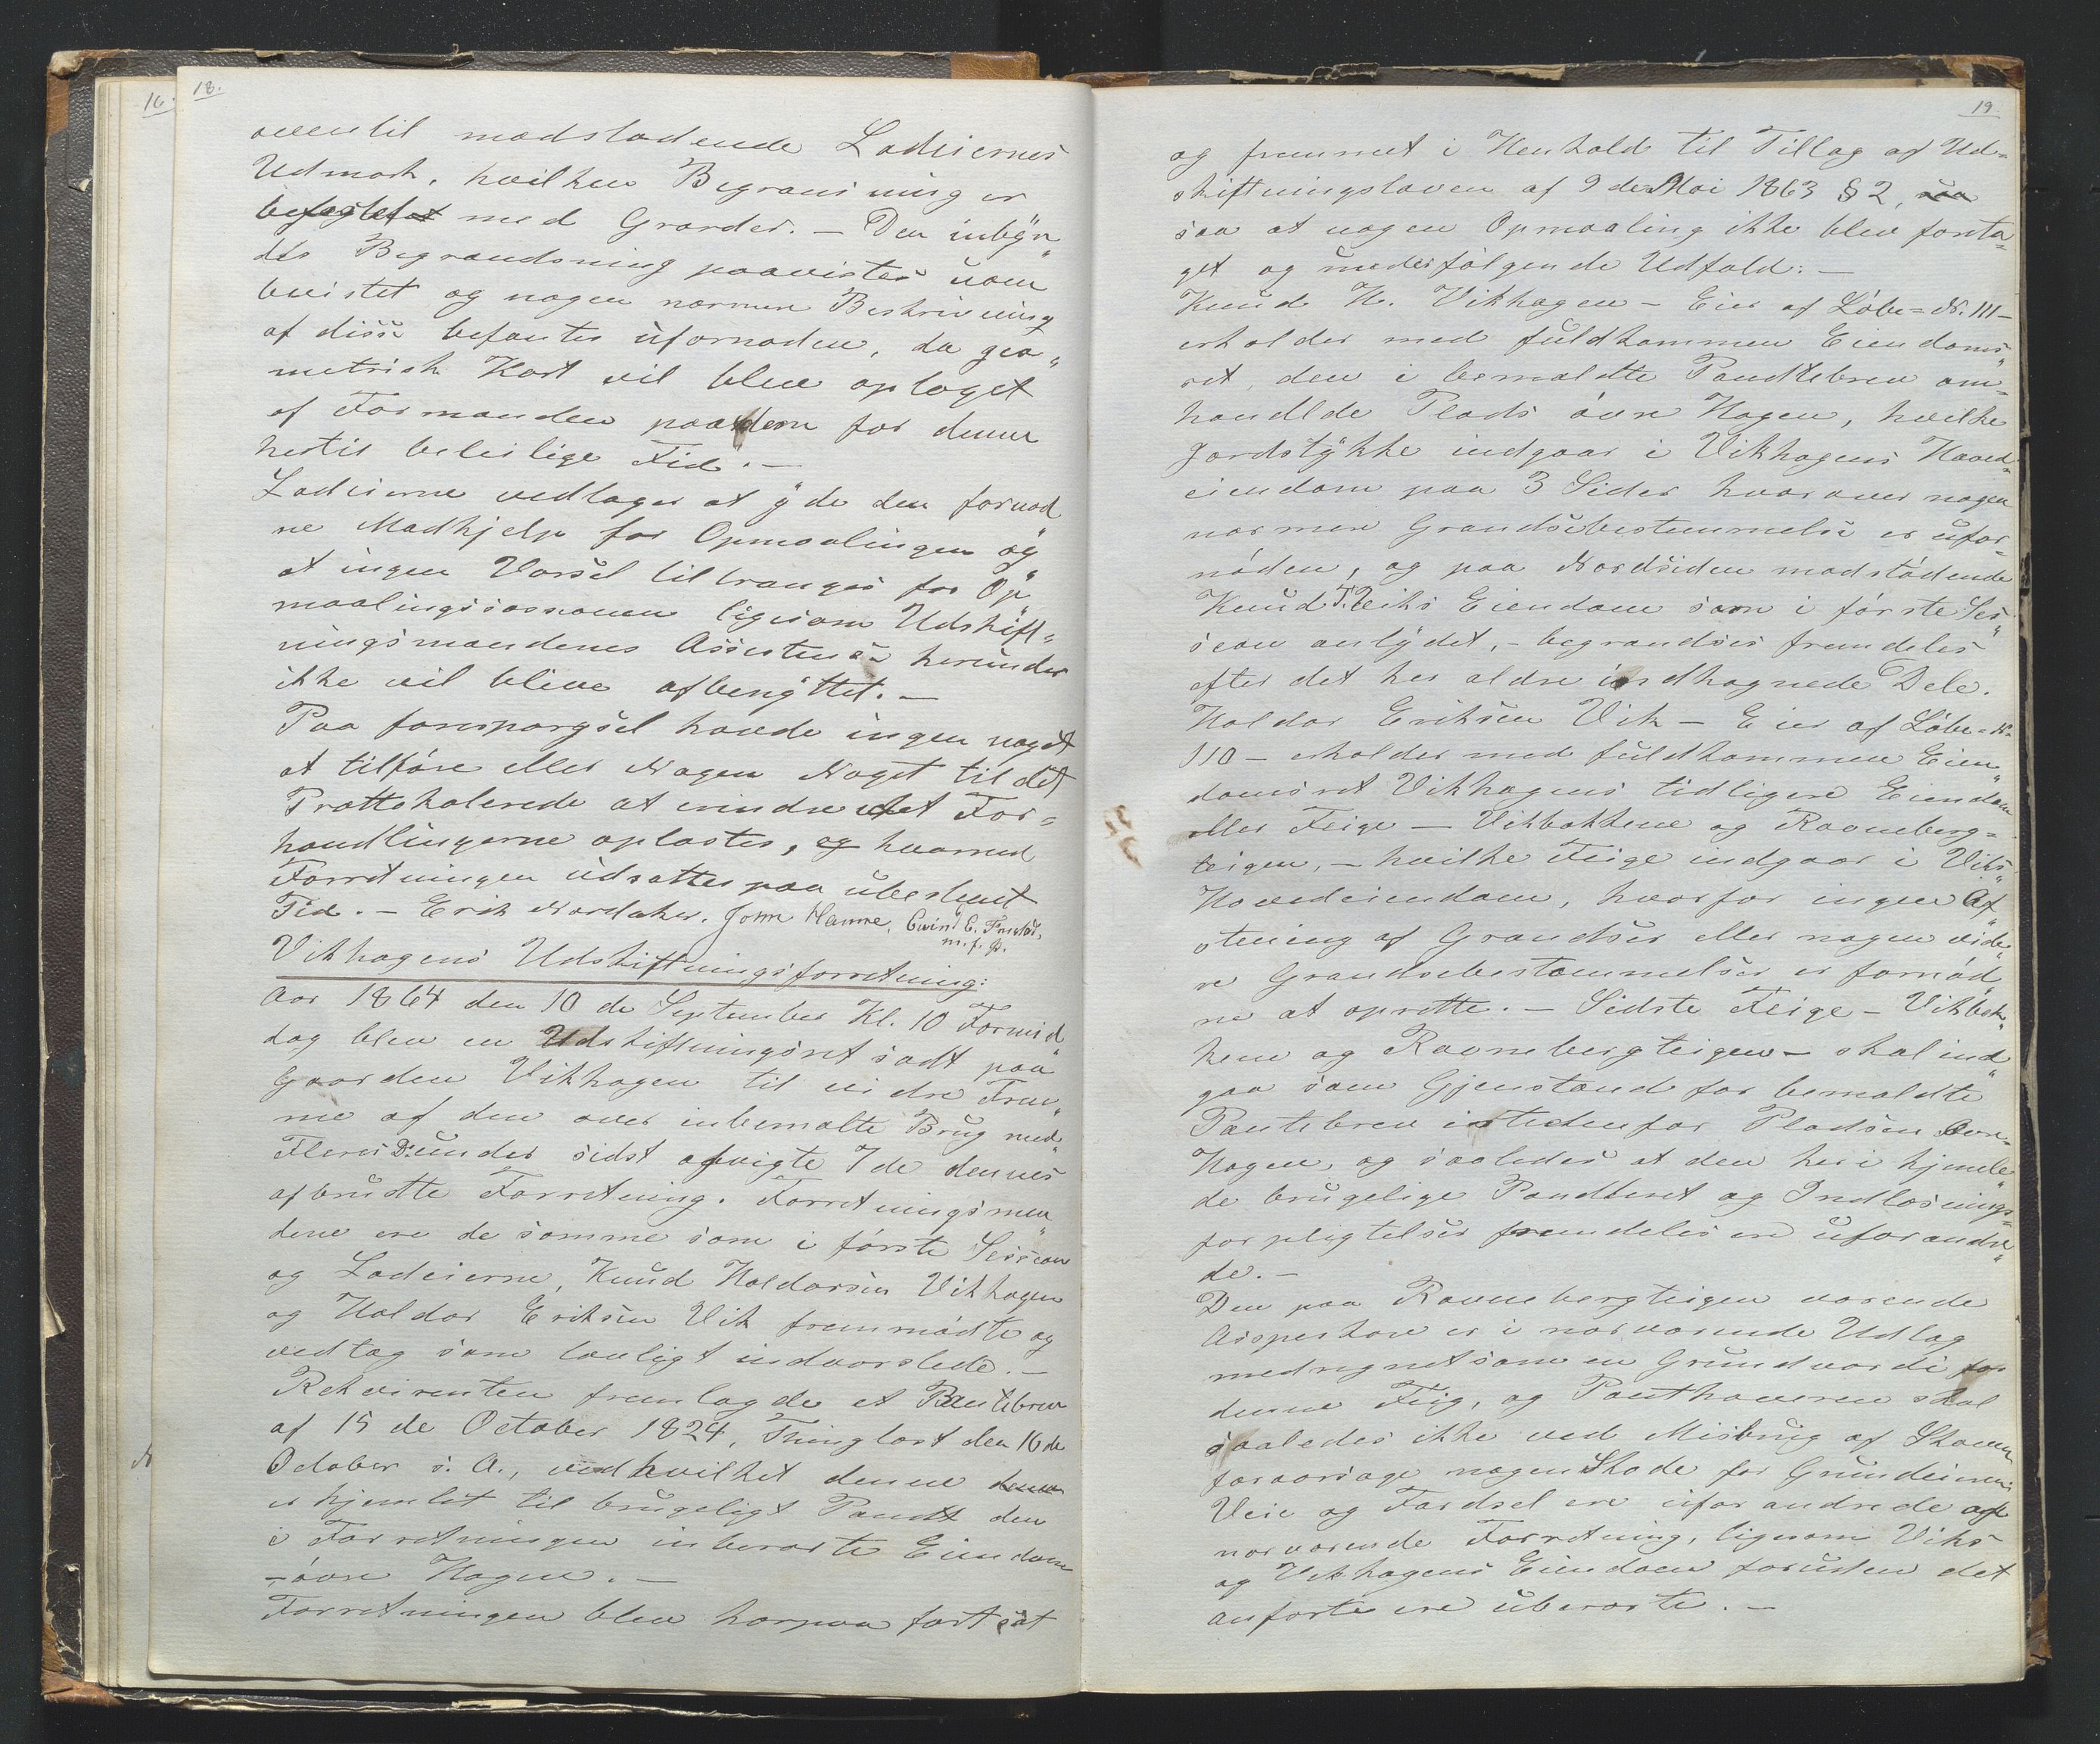 16.
18.
oventil modstødende Lodeiernes
Udmark, hvilken Begrænsning er
befæstet med Gjærder. — Den inbyr„
des Begrændsning paavistes uom„
tvistet og nogen nærmere Beskrivning
af disse befantes ufornøden, da geo„
metrisk Kart vil blive optaget
af Formanden paa dem for denne
hertil beleilige Tid. —
Lodeierne vedtager at yde den fornød
ne Madhjelp for Opmaalingen og
at ingen Varsel tiltrænges for Op„
maalingssæsonen ligesom Udskift=
ningsmændenes Assistense herunder
ikke vil blive afbenyttet. —
Paa forespørgsel havde ingen noget
at tilføre eller Nogen Noget til det
Prottokolerede at erindre det For=
handlingerne oplæstes, og hvormed
Forretningen udsattes paa ubestemt
Tid. — Erik Nordaker. John Hamre, Eivind E.
m. f. P.
Vikhagens Udskiftningsforretning:
Aar 1864 den 10 de September Kl. 10 Formid
dag blev en Udskiftningsret sadt paa
Gaarden Vikhagen til vidre Frem„
me af den over inbemælte Brug med
Fleres D: under sidst afvigte 7 de dennes
afbrudte Forretning. Forretningsmæn„
dene ere de samme som i første Session
og Lodeierne, Knud Haldorsen Vikhagen
og Haldor Eriksen Vik fremmødte og
vedtog som lovligt indvarslede. —
Rekvirenten fremlagde et Pantebrev
af 15 de October 1824, Thinglæst den 16 de
October s. A., ved hvilket denne denne
er hjemlet til brugeligt Pandt den
i Forretningen inberørte Eiendom
— øvre Hagen. —
Forretningen blev herpaa fortsat
19
og fremmet i Henhold til Tillæg af Ud=
skiftningsloven af 9 de Mai 1863 § 2, saa
saa at nogen Opmaaling ikke blev foreta=
get og med følgende Udfald: —
Knud H. Vikhagen — Eier af Löbe=N. 111 —
erholder med fuldkommen Eiendoms„
ret, den i bemældte Pandtebrev om=
handlde Plads øvre Hagen, hvilke
Jordstykke indgaar i Vikhagens Hoved=
eiendom paa 3 Sider hvorover nogen
nærmere Grændsebestemmelse er ufor=
nøden, og paa Nordsiden modstødende
Knud T. Viks Eiendom som i første Ses„
sion antydet, — begrændses fremdeles
efter det her ældre indhægnede Dele.
Haldor Eriksen Vik — Eier af Löbe=N.
110 — erholder med fuldkommen Eien„
domsret Vikhagens tidligere Eiendom
eller Teige — Vikbakkene og Ravneberg=
teigen, — hvilke Teige indgaar i Viks
Hovedeiendom, hvorfor ingen Af„
stening af Grændser eller nogen vide„
re Grændsebestemmelser er fornød„
ne at oprette. — Sidste Teige — Vikbak„
kene og Ravnebergteigen — skal ind„
gaa som Gjenstand for bemældte
Pantebrev istedenfor Pladsen Øvre
Hagen, og saaledes at den heri hjemle„
de brugelige Pandteret og Indløsnings=
forpligtelser fremdeles ere uforandre„
de. —
Den paa Ravnebergteigen værende
Aspeskov er i nærværende Udlæg
medregnet som en Grundværdi for
denne Teig, og Panthaveren skal
saaledes ikke ved Misbrug af Skoven
foraarsage nogen Skade for Grundeieren.
Veie og Færdsel ere uforandrede af
nærværende Forretning, ligesom Viks
og Vikhagens Eiendom foruden det
anførte ere uberørte. —